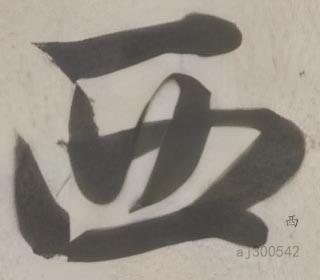 西
西
aj300542